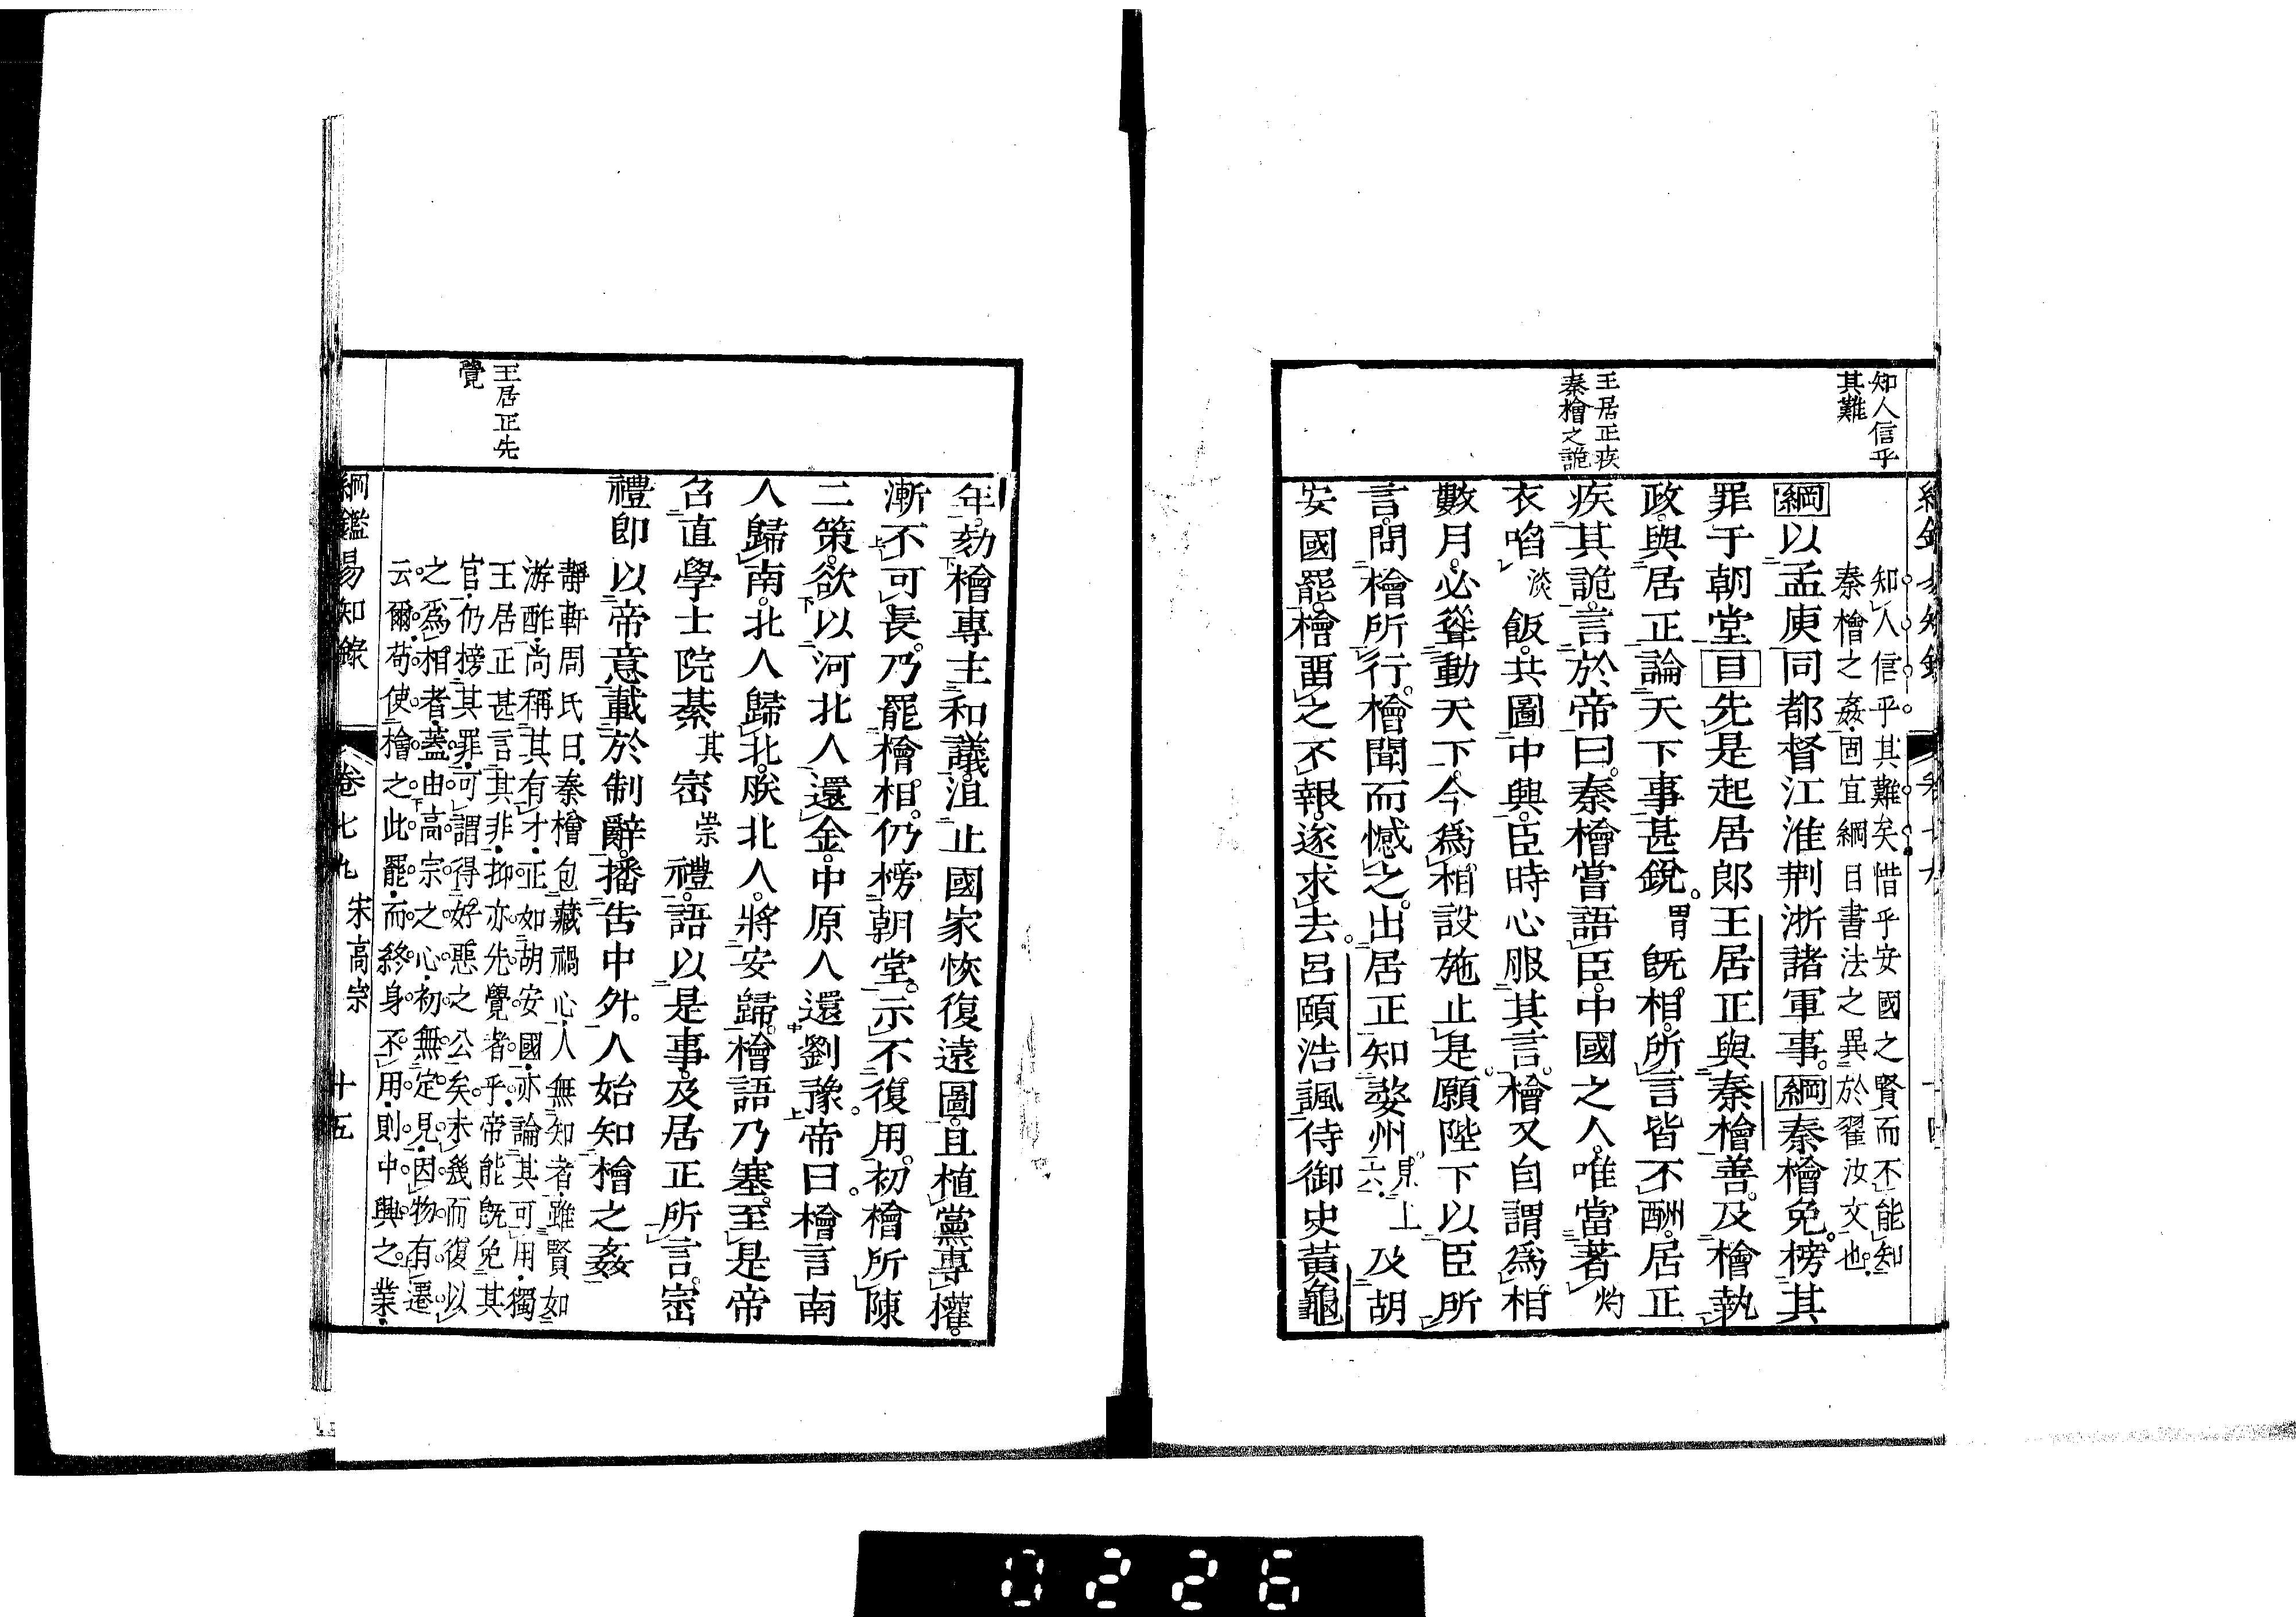 知人信乎
其難
王居正疾
秦檜之詭
知人信乎其難矣惜乎安國之賢而不能知
秦檜之姦固宜綱目書法之異於翟汝文也
綱以孟庾同都督江淮荆浙諸軍事綱秦檜免榜其
罪于朝堂目先是起居郞王居正與秦檜善及檜執
政與居正論天下事甚銳胃旣相所言皆不酬居正
疾其詭言於帝曰秦檜嘗語臣中國之人唯當著灼
衣啗淡飯共圖中興臣時心服其言檜又自謂爲相
數月必聳動天下今爲相設施止是願陛下以臣所
言問檜所行檜聞而憾之出居正知婺州見上二六及胡
安國罷檜畱之不報遂求去呂頤浩諷侍御史黃龜
年劾檜專主和議沮止國家恢復遠圖且植黨專權
漸不可長乃罷檜相仍榜朝堂示不復用初檜所陳
二策欲以河北人還金中原人還劉豫帝曰檜言南
人歸南北人歸北朕北人將安歸檜語乃塞至是帝
召直學士院綦其崈崇禮語以是事及居正所言崈
禮卽以帝意載於制辭播告中外人始知檜之姦
王居正先
覺
靜軒周氏曰秦檜包藏禍心人無知者雖賢如
游酢尚稱其有才正如胡安國亦論其可用獨
王居正甚言其非抑亦先覺者乎帝能旣免其
官仍榜其罪可謂得好惡之公矣未幾而復以
之爲相者蓋由高宗之心初無定見因物有遷
云爾苟使檜之此罷而終身不用則中興之業
綱鑑易知錄 卷七九 宋高宗 十五